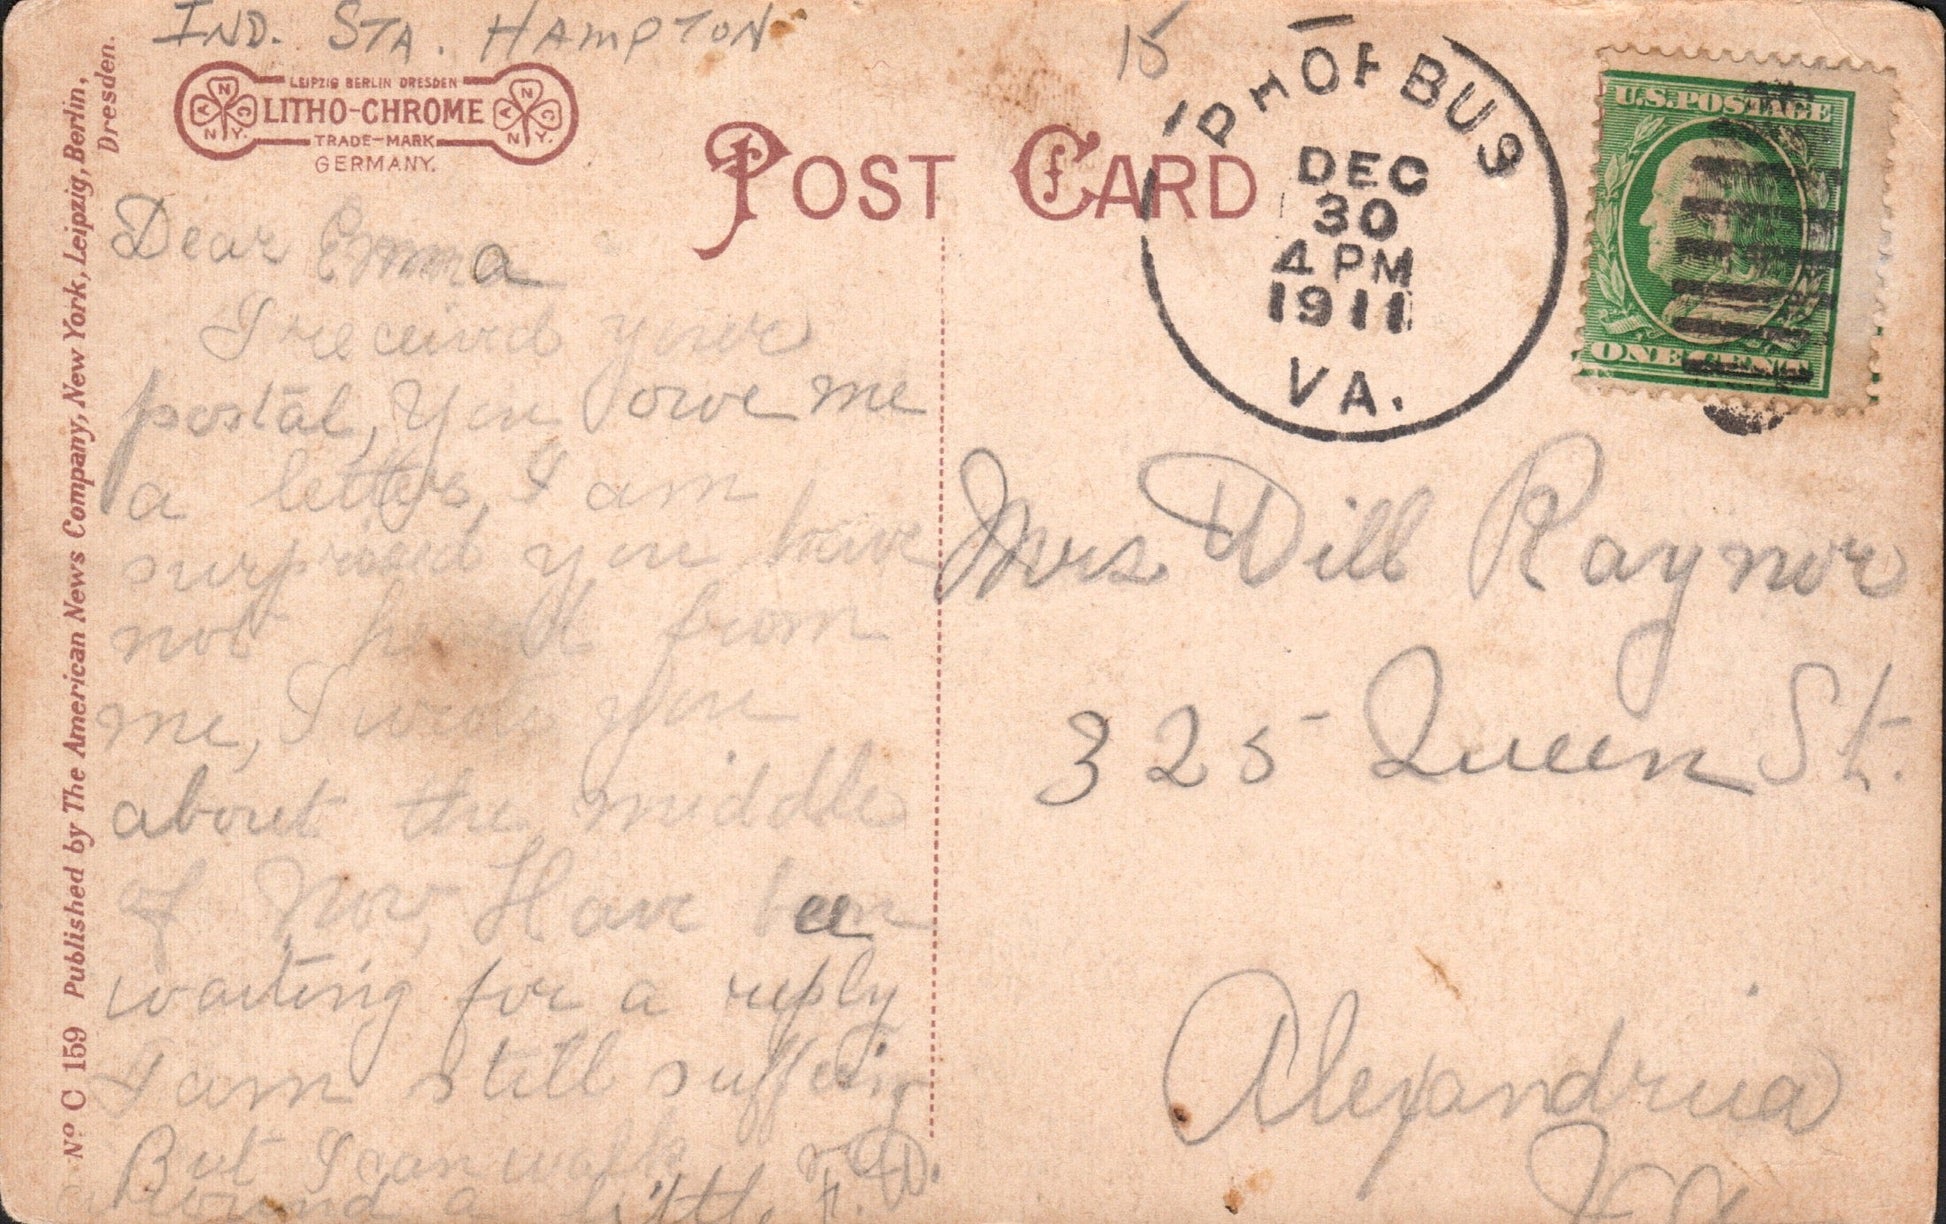 IND. STA. HAMPTON
15
LEIPZIG BERLIN DRESDEN
LITHO-CHROME
TRADE-MARK
GERMANY.
POST CARD
PHOEBUS
DEC
30
4 PM
1911
VA.
U.S. POSTAGE
ONE CENT
Nº C 159 Published by The American News Company, New York, Leipzig, Berlin,
Dresden.
Dear Emma
I received your
postal, You owe me
a letter, I am
surprised you have
not heard from
me, I wrote you
about the middle
of Nov, Have been
waiting for a reply
I am still suffering
But I can walk
around a little
Mrs Will Raynor
325 Queen St.
Alexandria
Va